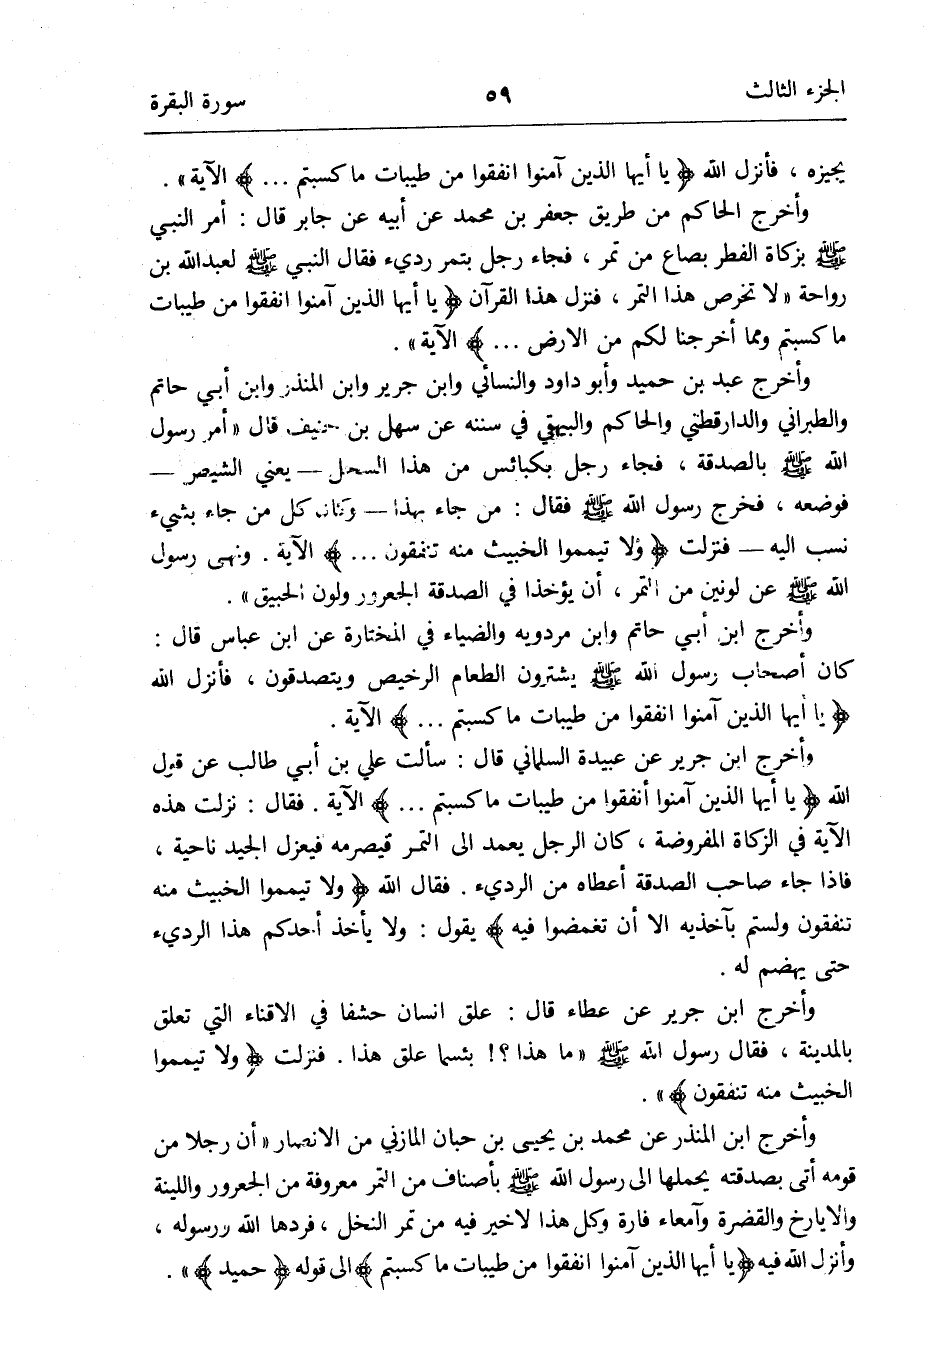 الجزء الثالث ٥٩ سورة البقرة
يجيزه ، فأنزل الله ﴿ يا أيها الذين آمنوا انفقوا من طيبات ما كسبتم ... ﴾ الآية» .
وأخرج الحاكم من طريق جعفر بن محمد عن أبيه عن جابر قال : أمر النبي
ﷺ بزكاة الفطر بصاع من تمر ، فجاء رجل بتمر رديء فقال النبي ﷺ لعبدالله بن
رواحة « لا تخرص هذا التمر ، فنزل هذا القرآن ﴿ يا أيها الذين آمنوا انفقوا من طيبات
ما كسبتم ومما أخرجنا لكم من الارض ... ﴾ الآية» .
وأخرج عبد بن حميد وأبو داود والنسائي وابن جرير وابن المنذر وابن أبي حاتم
والطبراني والدارقطني والحاكم والبيهقي في سننه عن سهل بن حنيف قال « أمر رسول
الله ﷺ بالصدقة ، فجاء رجل بكبائس من هذا السحل — يعني الشيص —
فوضعه ، فخرج رسول الله ﷺ فقال : من جاء بهذا — وكان كل من جاء بشيء
نسب اليه — فنزلت ﴿ ولا تيمموا الخبيث منه تنفقون ... ﴾ الآية . ونهى رسول
الله ﷺ عن لونين من التمر ، أن يؤخذا في الصدقة الجعرور ولون الحبيق» .
وأخرج ابن أبي حاتم وابن مردويه والضياء في المختارة عن ابن عباس قال :
كان أصحاب رسول الله ﷺ يشترون الطعام الرخيص ويتصدقون ، فأنزل الله
﴿ يا أيها الذين آمنوا انفقوا من طيبات ما كسبتم ... ﴾ الآية .
وأخرج ابن جرير عن عبيدة السلماني قال : سألت علي بن أبي طالب عن قول
الله ﴿ يا أيها الذين آمنوا أنفقوا من طيبات ما كسبتم ... ﴾ الآية . فقال : نزلت هذه
الآية في الزكاة المفروضة ، كان الرجل يعمد الى التمر فيصرمه فيعزل الجيد ناحية ،
فاذا جاء صاحب الصدقة أعطاه من الرديء . فقال الله ﴿ ولا تيمموا الخبيث منه
تنفقون ولستم بآخذيه الا أن تغمضوا فيه ﴾ يقول : ولا يأخذ أحدكم هذا الرديء
حتى يهضم له .
وأخرج ابن جرير عن عطاء قال : علق انسان حشفا في الاقناء التي تعلق
بالمدينة ، فقال رسول الله ﷺ « ما هذا ؟! بئسما علق هذا . فنزلت ﴿ ولا تيمموا
الخبيث منه تنفقون ﴾» .
وأخرج ابن المنذر عن محمد بن يحيى بن حبان المازني من الانصار « أن رجلا من
قومه أتى بصدقته يحملها الى رسول الله ﷺ بأصناف من التمر معروفة من الجعرور واللينة
والايارخ والقضرة وآمعاء فارة وكل هذا لاخير فيه من تمر النخل ، فردها الله ورسوله ،
وأنزل الله فيه ﴿ يا أيها الذين آمنوا انفقوا من طيبات ما كسبتم ﴾ الى قوله ﴿ حميد ﴾» .